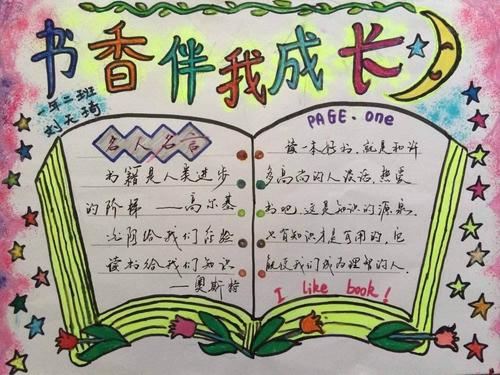 书香伴我成长
一年二班
刘天琦
名人名言
书籍是人类进步
的阶梯——高尔基
光阴给我们经验
读书给我们知识
——奥斯特
PAGE.one
读一本好书,就是和许
多高尚的人谈话,热爱
书吧,这是知识的源泉.
只有知识才是可用的,它
能使我们成为理智的人.
I like book!